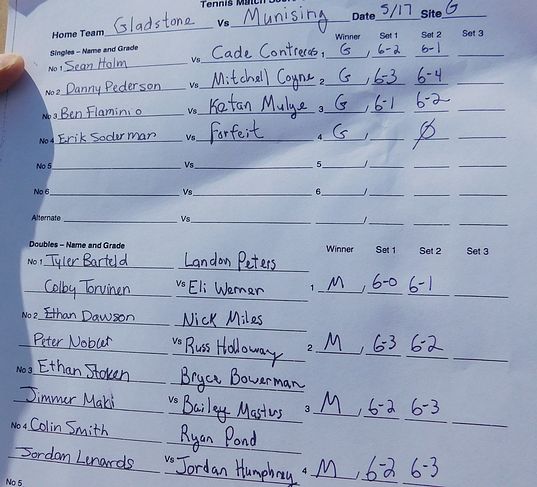 Tennis Match Score
Home Team Gladstone Vs Munising Date 5/17 Site G
Singles – Name and Grade Winner Set 1 Set 2 Set 3
No 1 Sean Holm Vs Cade Contreras 1 G / 6-2 6-1
No 2 Danny Pederson Vs Mitchell Coyne 2 G / 6-3 6-4
No 3 Ben Flaminio Vs Katan Mulye 3 G / 6-1 6-2
No 4 Erik Soderman Vs Forfeit 4 G / Ø
No 5 Vs 5 /
No 6 Vs 6 /
Alternate Vs /
Doubles – Name and Grade Winner Set 1 Set 2 Set 3
No 1 Tyler Barteld Landon Peters
Colby Torvinen Vs Eli Werner 1 M / 6-0 6-1
No 2 Ethan Dawson Nick Miles
Peter Noblet Vs Russ Holloway 2 M / 6-3 6-2
No 3 Ethan Stoken Bryce Bowerman
Jimmer Maki Vs Bailey Masters 3 M / 6-2 6-3
No 4 Colin Smith Ryan Pond
Jordan Lenards Vs Jordan Humphrey 4 M / 6-2 6-3
No 5